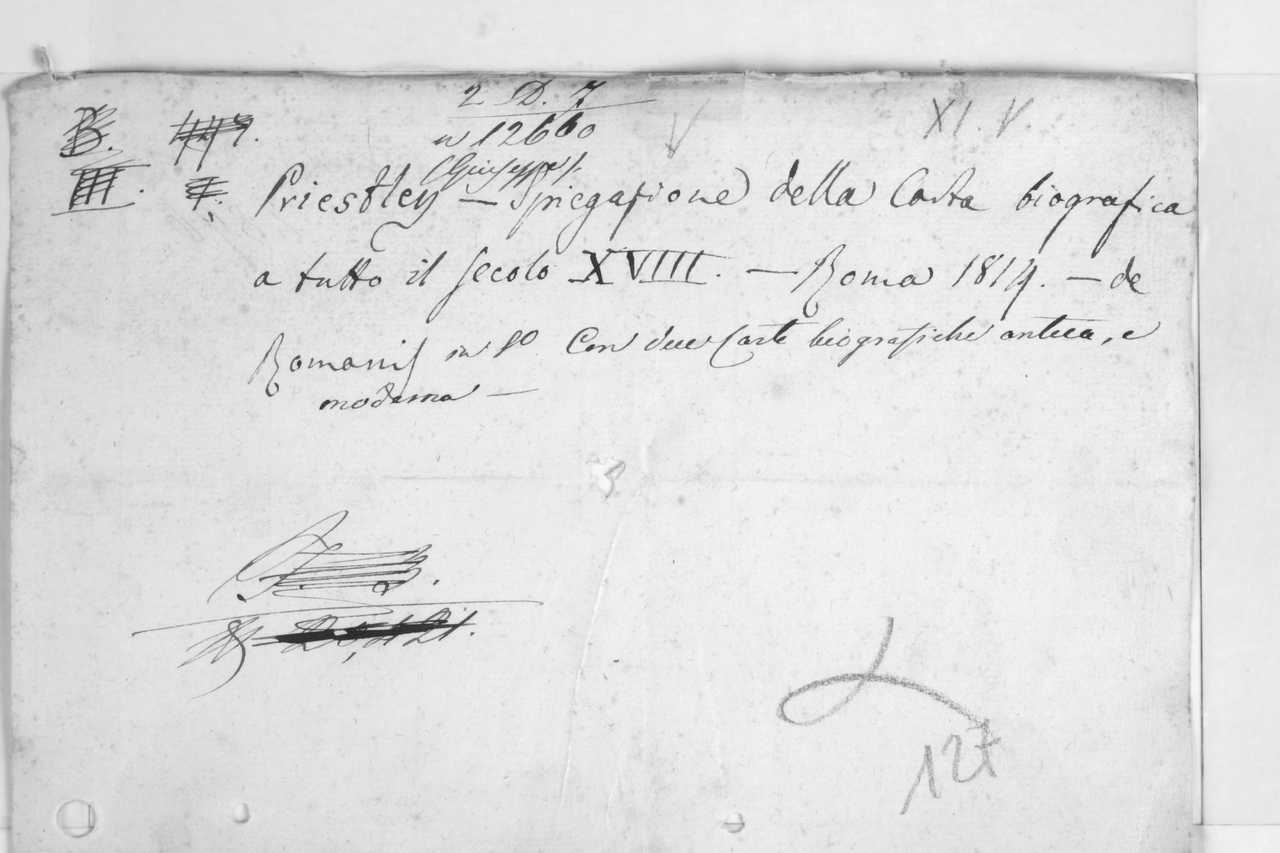 2 D. 7
XI. V.
B.
n 12660
(Giuseppe).
III.
Priestley — Spiegazione della Carta biografica
a tutto il secolo XVIII. — Roma 1814. — de
Romanis in 8º Con due Carte biografiche antica, e
moderna —
127